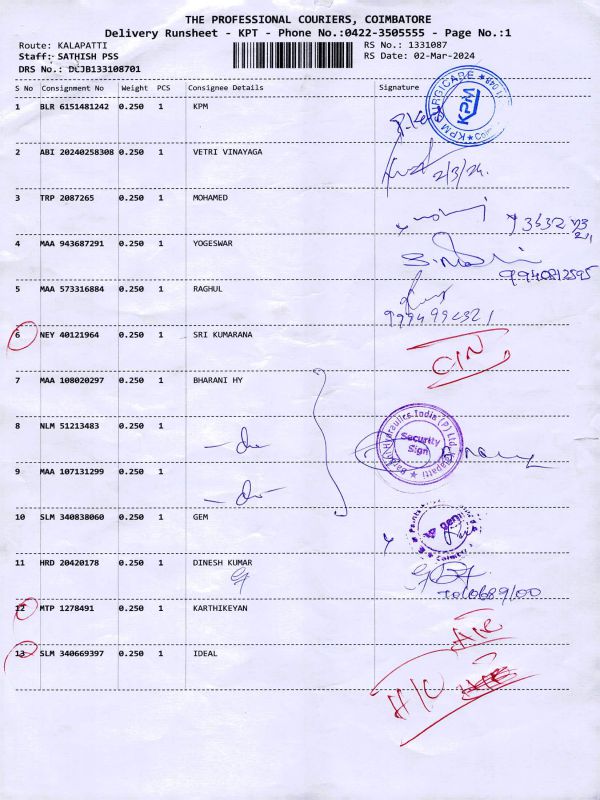 THE PROFESSIONAL COURIERS, COIMBATORE
Delivery Runsheet - KPT - Phone No.:0422-3505555 - Page No.:1
Route: KALAPATTI RS No.: 1331087
Staff: SATHISH PSS RS Date: 02-Mar-2024
DRS No.: DLJB133108701
S No Consignment No Weight PCS Consignee Details Signature
1 BLR 6151481242 0.250 1 KPM
KPM SURGICARE
KPM
2 ABI 20240258308 0.250 1 VETRI VINAYAGA
2/3/24.
3 TRP 2087265 0.250 1 MOHAMED
4 MAA 943687291 0.250 1 YOGESWAR
9940812595
5 MAA 573316884 0.250 1 RAGHUL
9994992321
6 NEY 40121964 0.250 1 SRI KUMARANA
C/N
7 MAA 108020297 0.250 1 BHARANI HY
8 NLM 51213483 0.250 1
- do
Hydraulics India (P) Ltd
Security
Sign
9 MAA 107131299 0.250 1
- do -
10 SLM 340838060 0.250 1 GEM
gem
11 HRD 20420178 0.250 1 DINESH KUMAR
12 MTP 1278491 0.250 1 KARTHIKEYAN
13 SLM 340669397 0.250 1 IDEAL